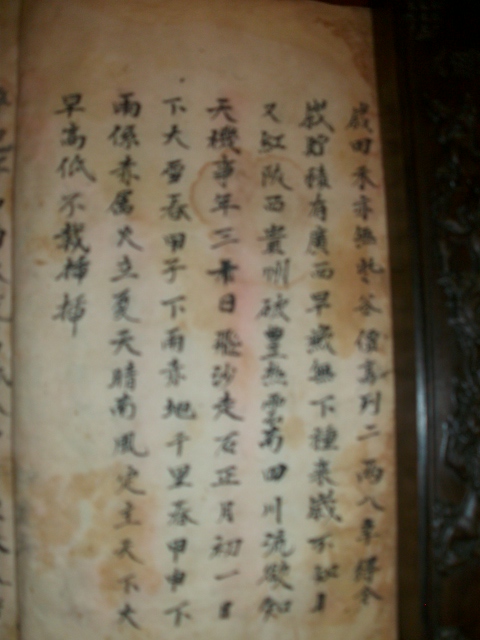 歲田禾亦無收谷價高到二兩八幸得今
歲貯積有廣西旱歲無下種來歲不
又江陝西貴州砍豐熟雲南四川流欲知
天機事年三十日飛沙走石正月初一日
下大雪春甲子下雨赤地千里春甲申下
雨係赤屬火立夏天晴南風定主天下大
旱高低不栽插